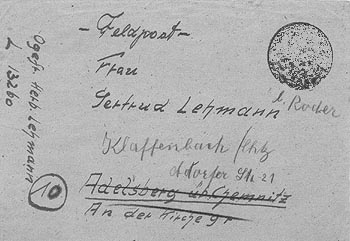 -Feldpost-
Frau
Gertrud Lehmann
b. Roder
Klaffenbach /Chtz
Adorfer Str. 21
Adelsberg üb. Chemnitz
An der Kirche 9
Ogefr. Herb. Lehmann
L 13260
10